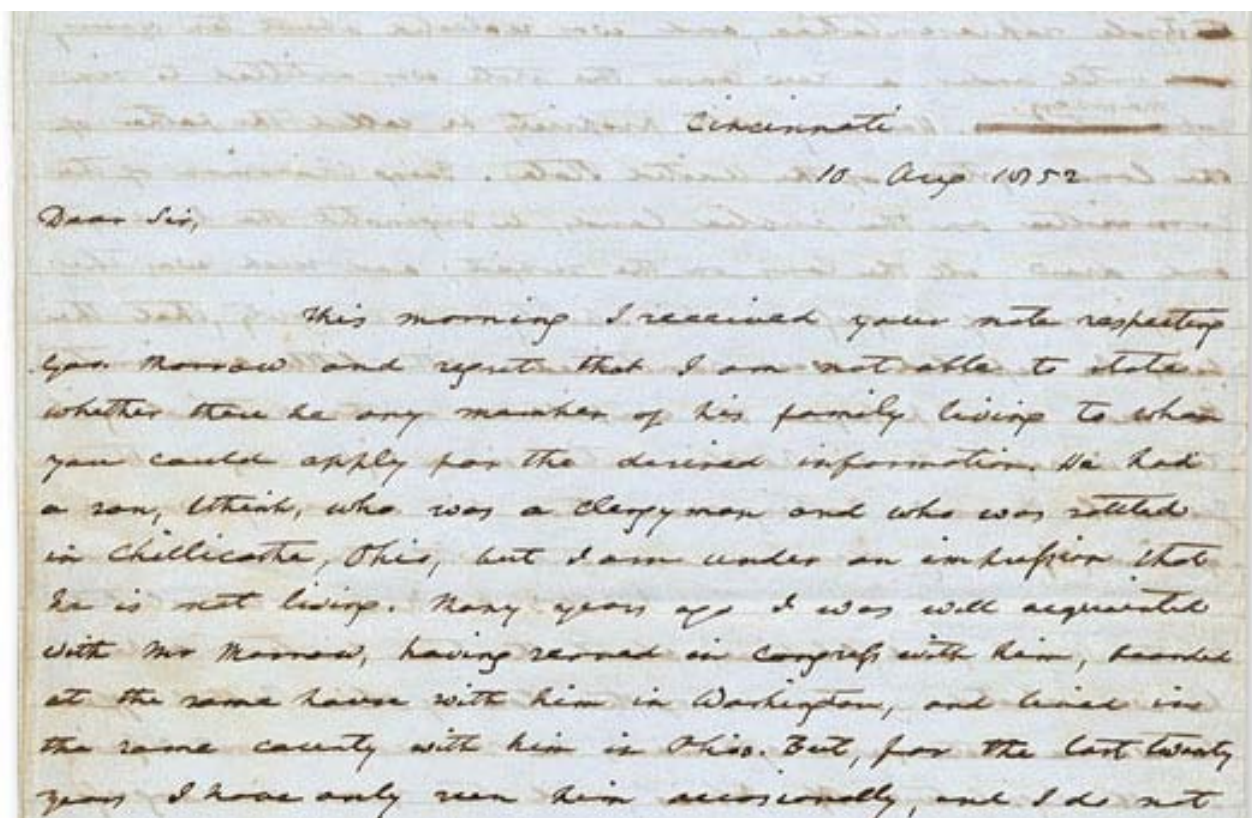 Cincinnati
10 Aug 1852
Dear Sir,
This morning I received your note respecting
Gov. Morrow and regret that I am not able to state
whether there be any member of his family living to whom
you could apply for the desired information. He had
a son, I think, who was a clergyman and who was settled
in Chillicothe, Ohio, but I am under an impression that
he is not living. Many years ago I was well acquainted
with Mr Morrow, having served in Congress with him, boarded
at the same house with him in Washington, and lived in
the same county with him in Ohio. But, for the last twenty
years I have only seen him occasionally, and I do not